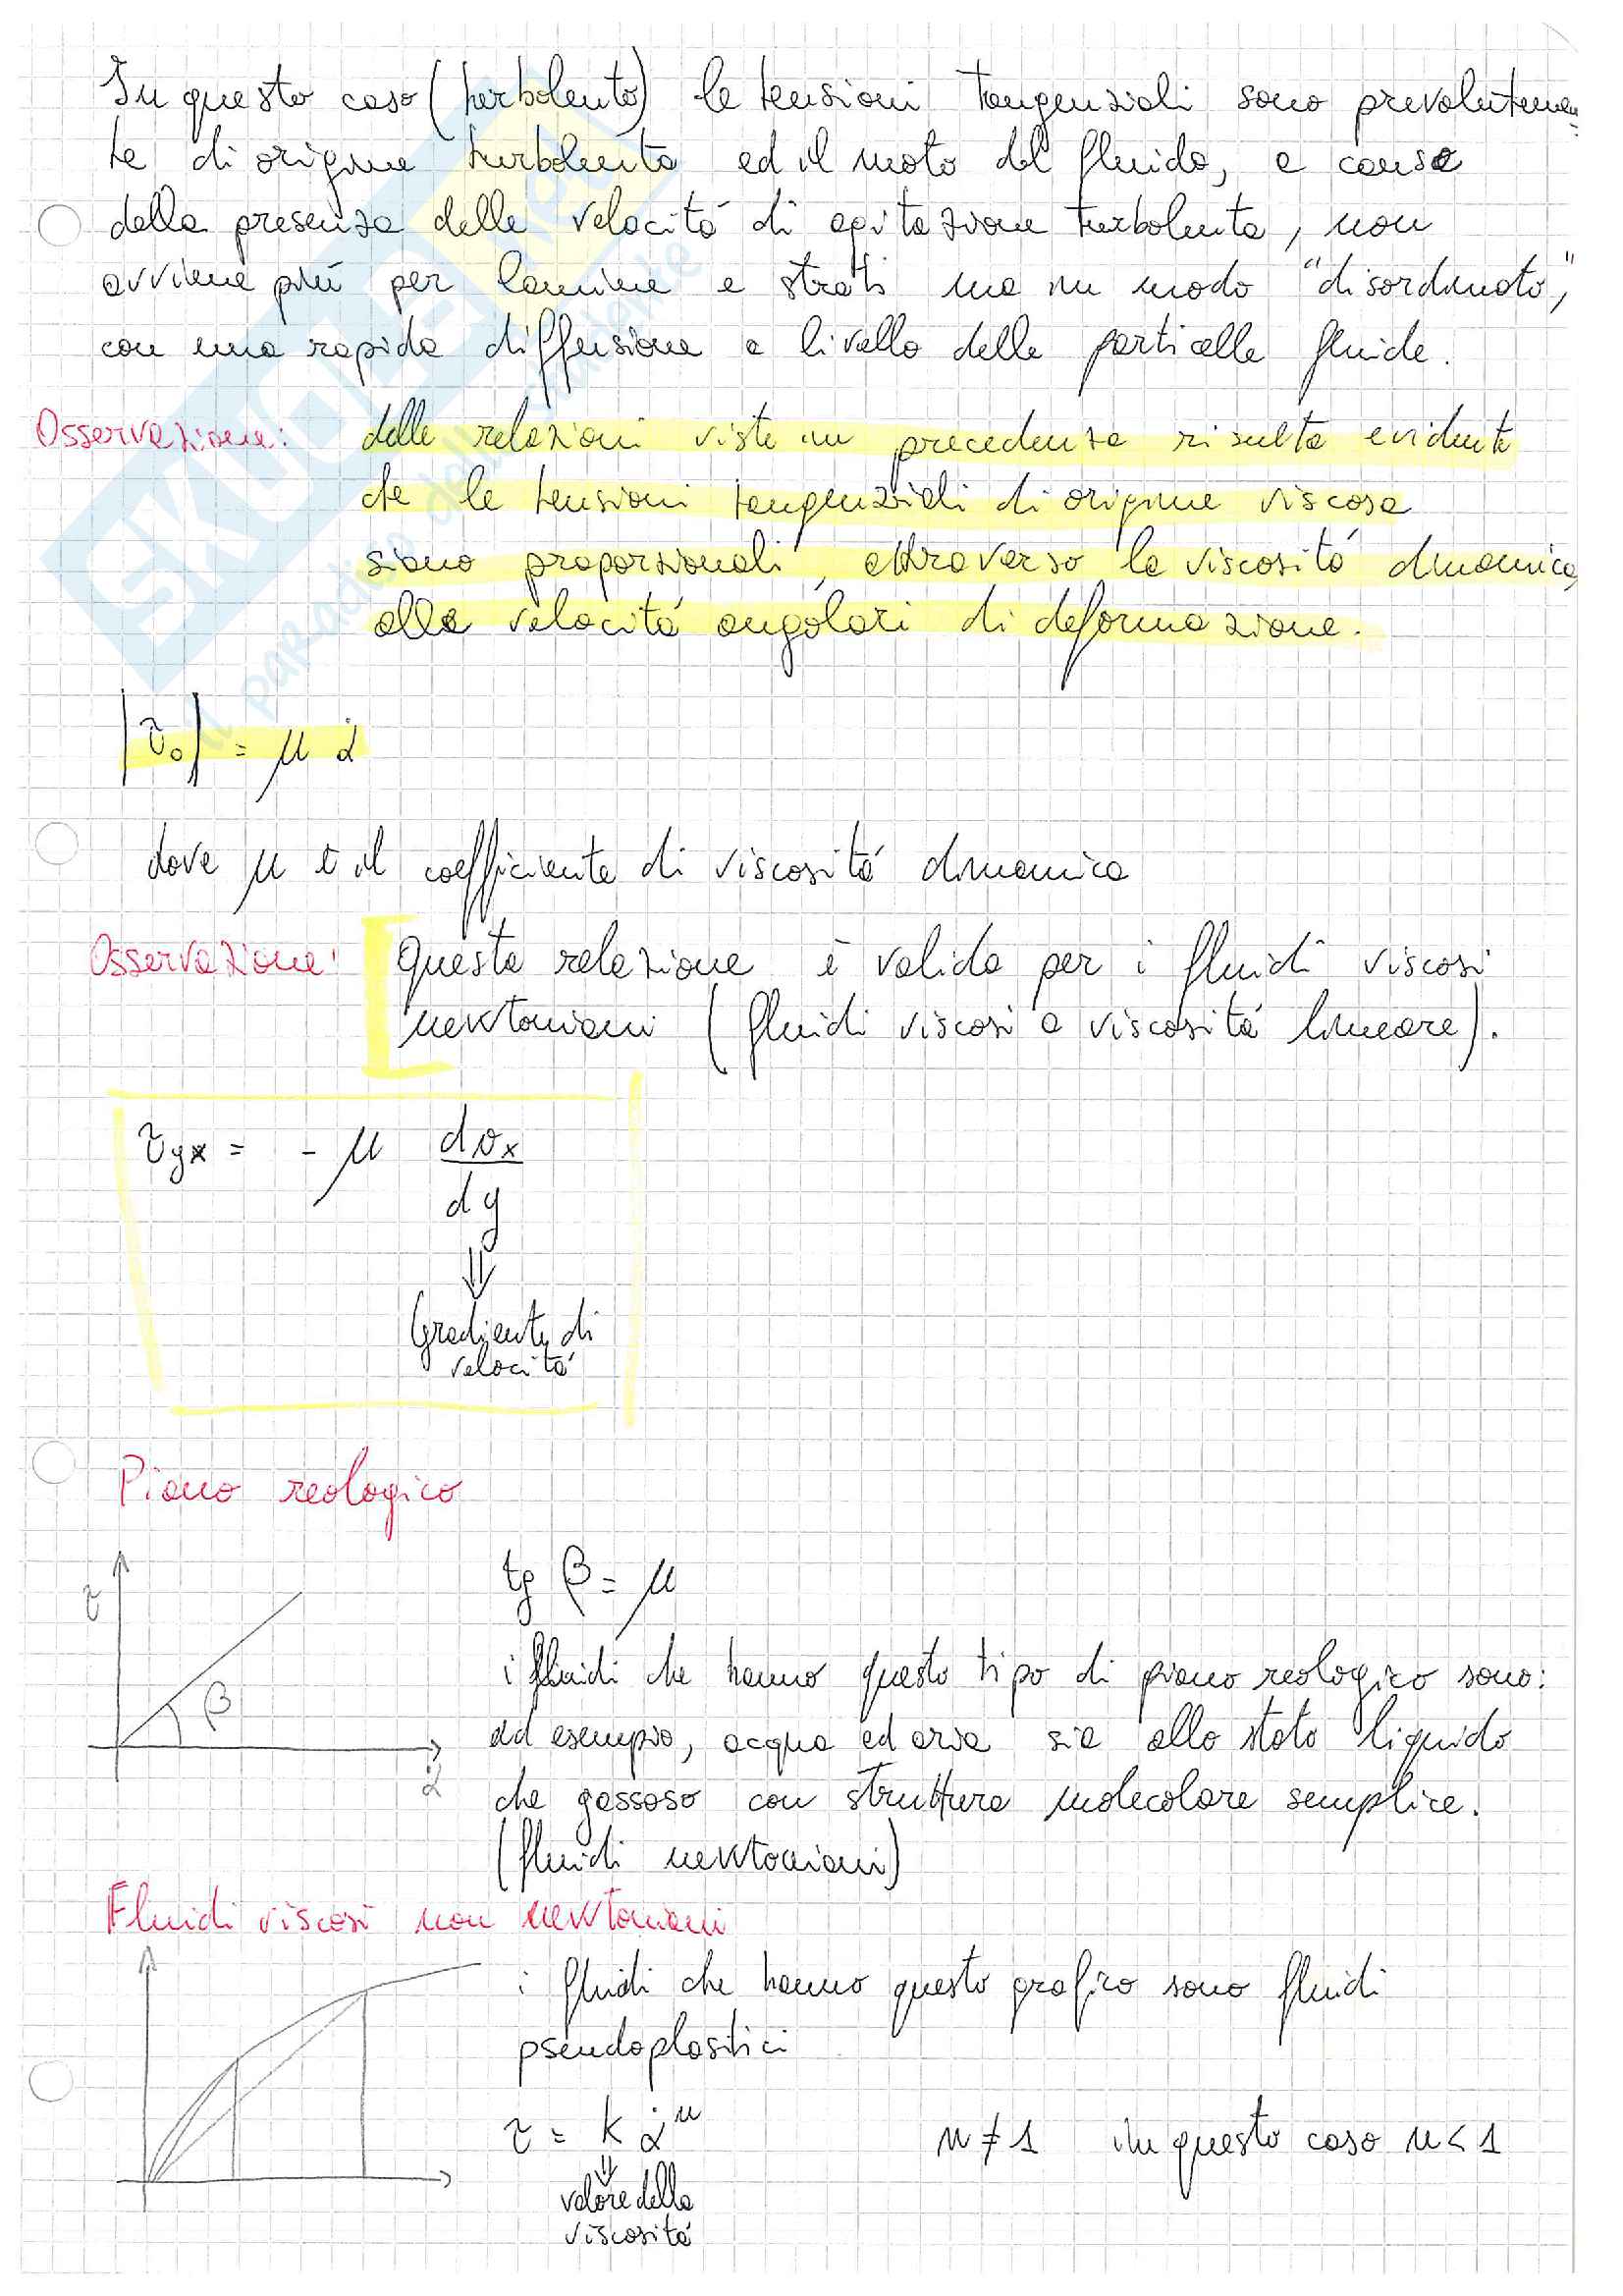 In questo caso (turbolento) le tensioni tangenziali sono prevalentemen-
te di origine turbolenta ed il moto del fluido, a causa
della presenza delle velocitá di agitazione turbolenta, non
avviene piú per lamine e strati ma in modo "disordinato",
con una rapida diffusione a livello delle particelle fluide.
Osservazione: dalle relazioni viste in precedenza risulta evidente
che le tensioni tangenziali di origine viscosa
siano proporzionali, attraverso la viscositá dinamica,
alla velocitá angolari di deformazione.
|τ₀| = μ α̇
dove μ è il coefficiente di viscositá dinamica
Osservazione: Questa relazione è valida per i fluidi viscosi
newtoniani (fluidi viscosi a viscositá lineare).
τyx = - μ dvx
dy
⇓
Gradiente di
velocitá
Piano reologico
τ
β
α̇
tg β = μ
i fluidi che hanno questo tipo di piano reologico sono:
ad esempio, acqua ed aria sia allo stato liquido
che gassoso con struttura molecolare semplice.
(fluidi newtoniani)
Fluidi viscosi non newtoniani
i fluidi che hanno questo grafico sono fluidi
pseudoplasitici
τ = k α̇ⁿ n ≠ 1 in questo caso n < 1
⇓
valore della
viscositá
SKUOLA.NET
il paradiso dello studente